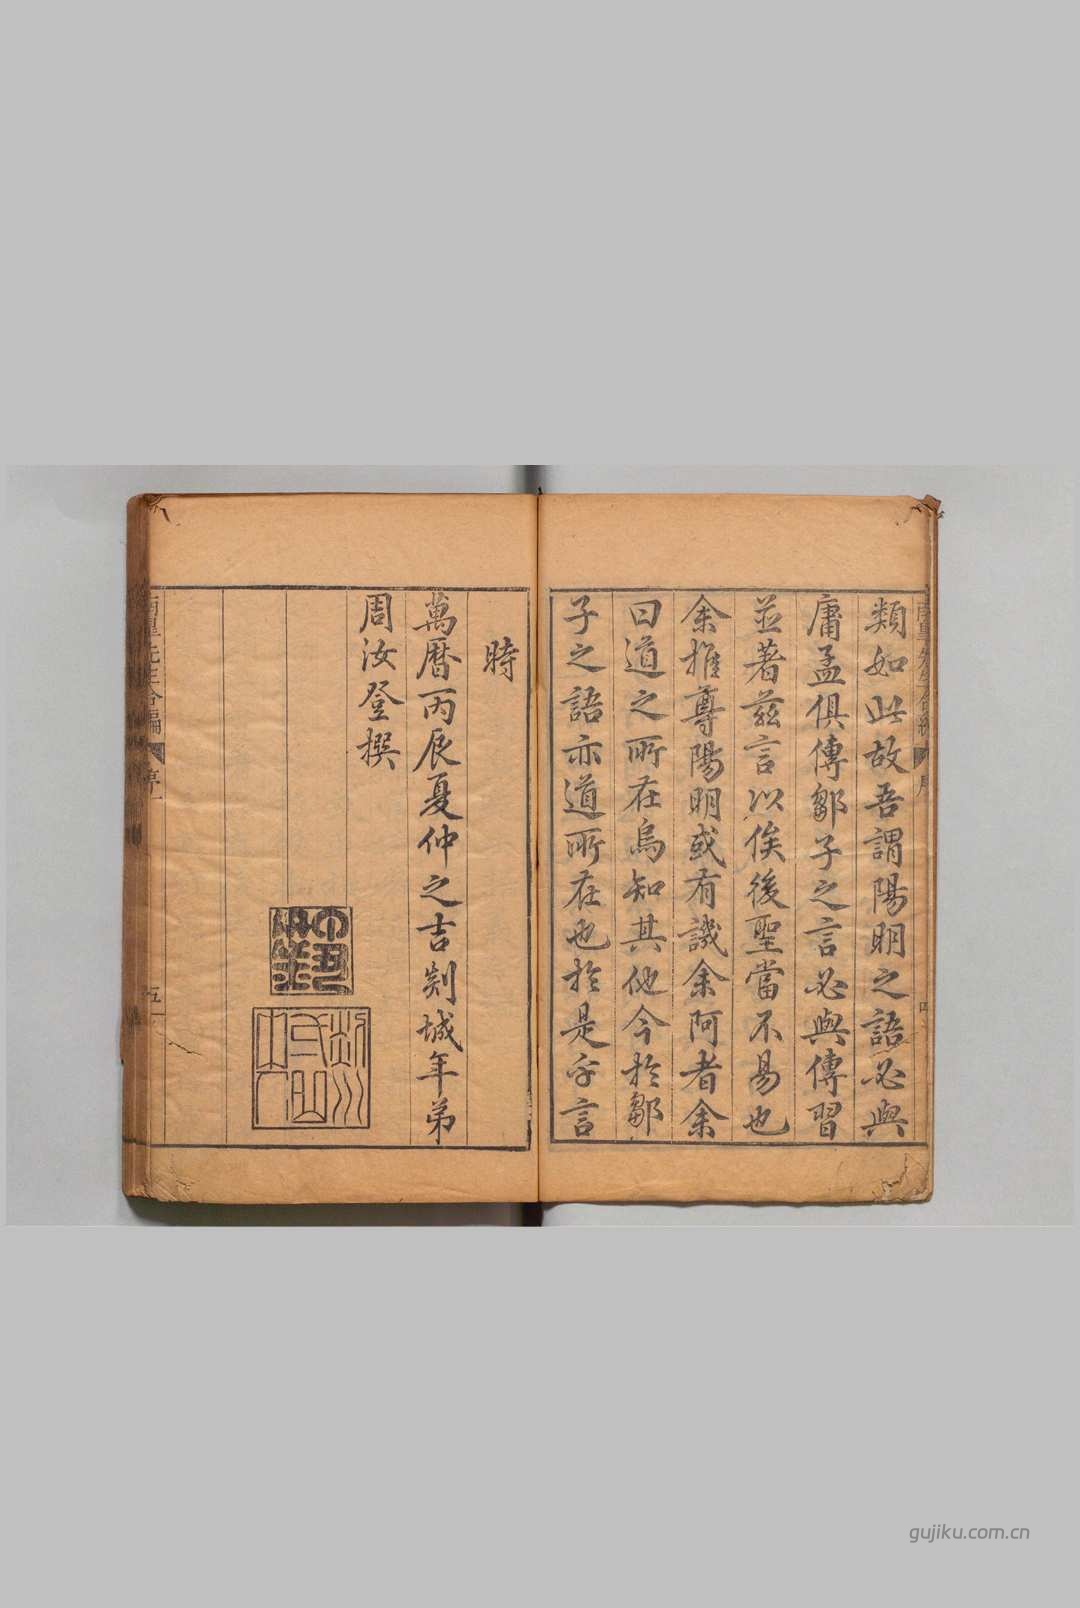 類如此故吾謂陽明之語必與
庸孟俱傳鄒子之言必與傳習
並著茲言以俟後聖當不易也
余推尊陽明或有譏余阿者余
曰道之所在烏知其他今於鄒
子之語亦道所在也於是乎言
時
萬曆丙辰夏仲之吉剡城年弟
周汝登撰
南皐先生合編
序一
五
gujiku.com.cn